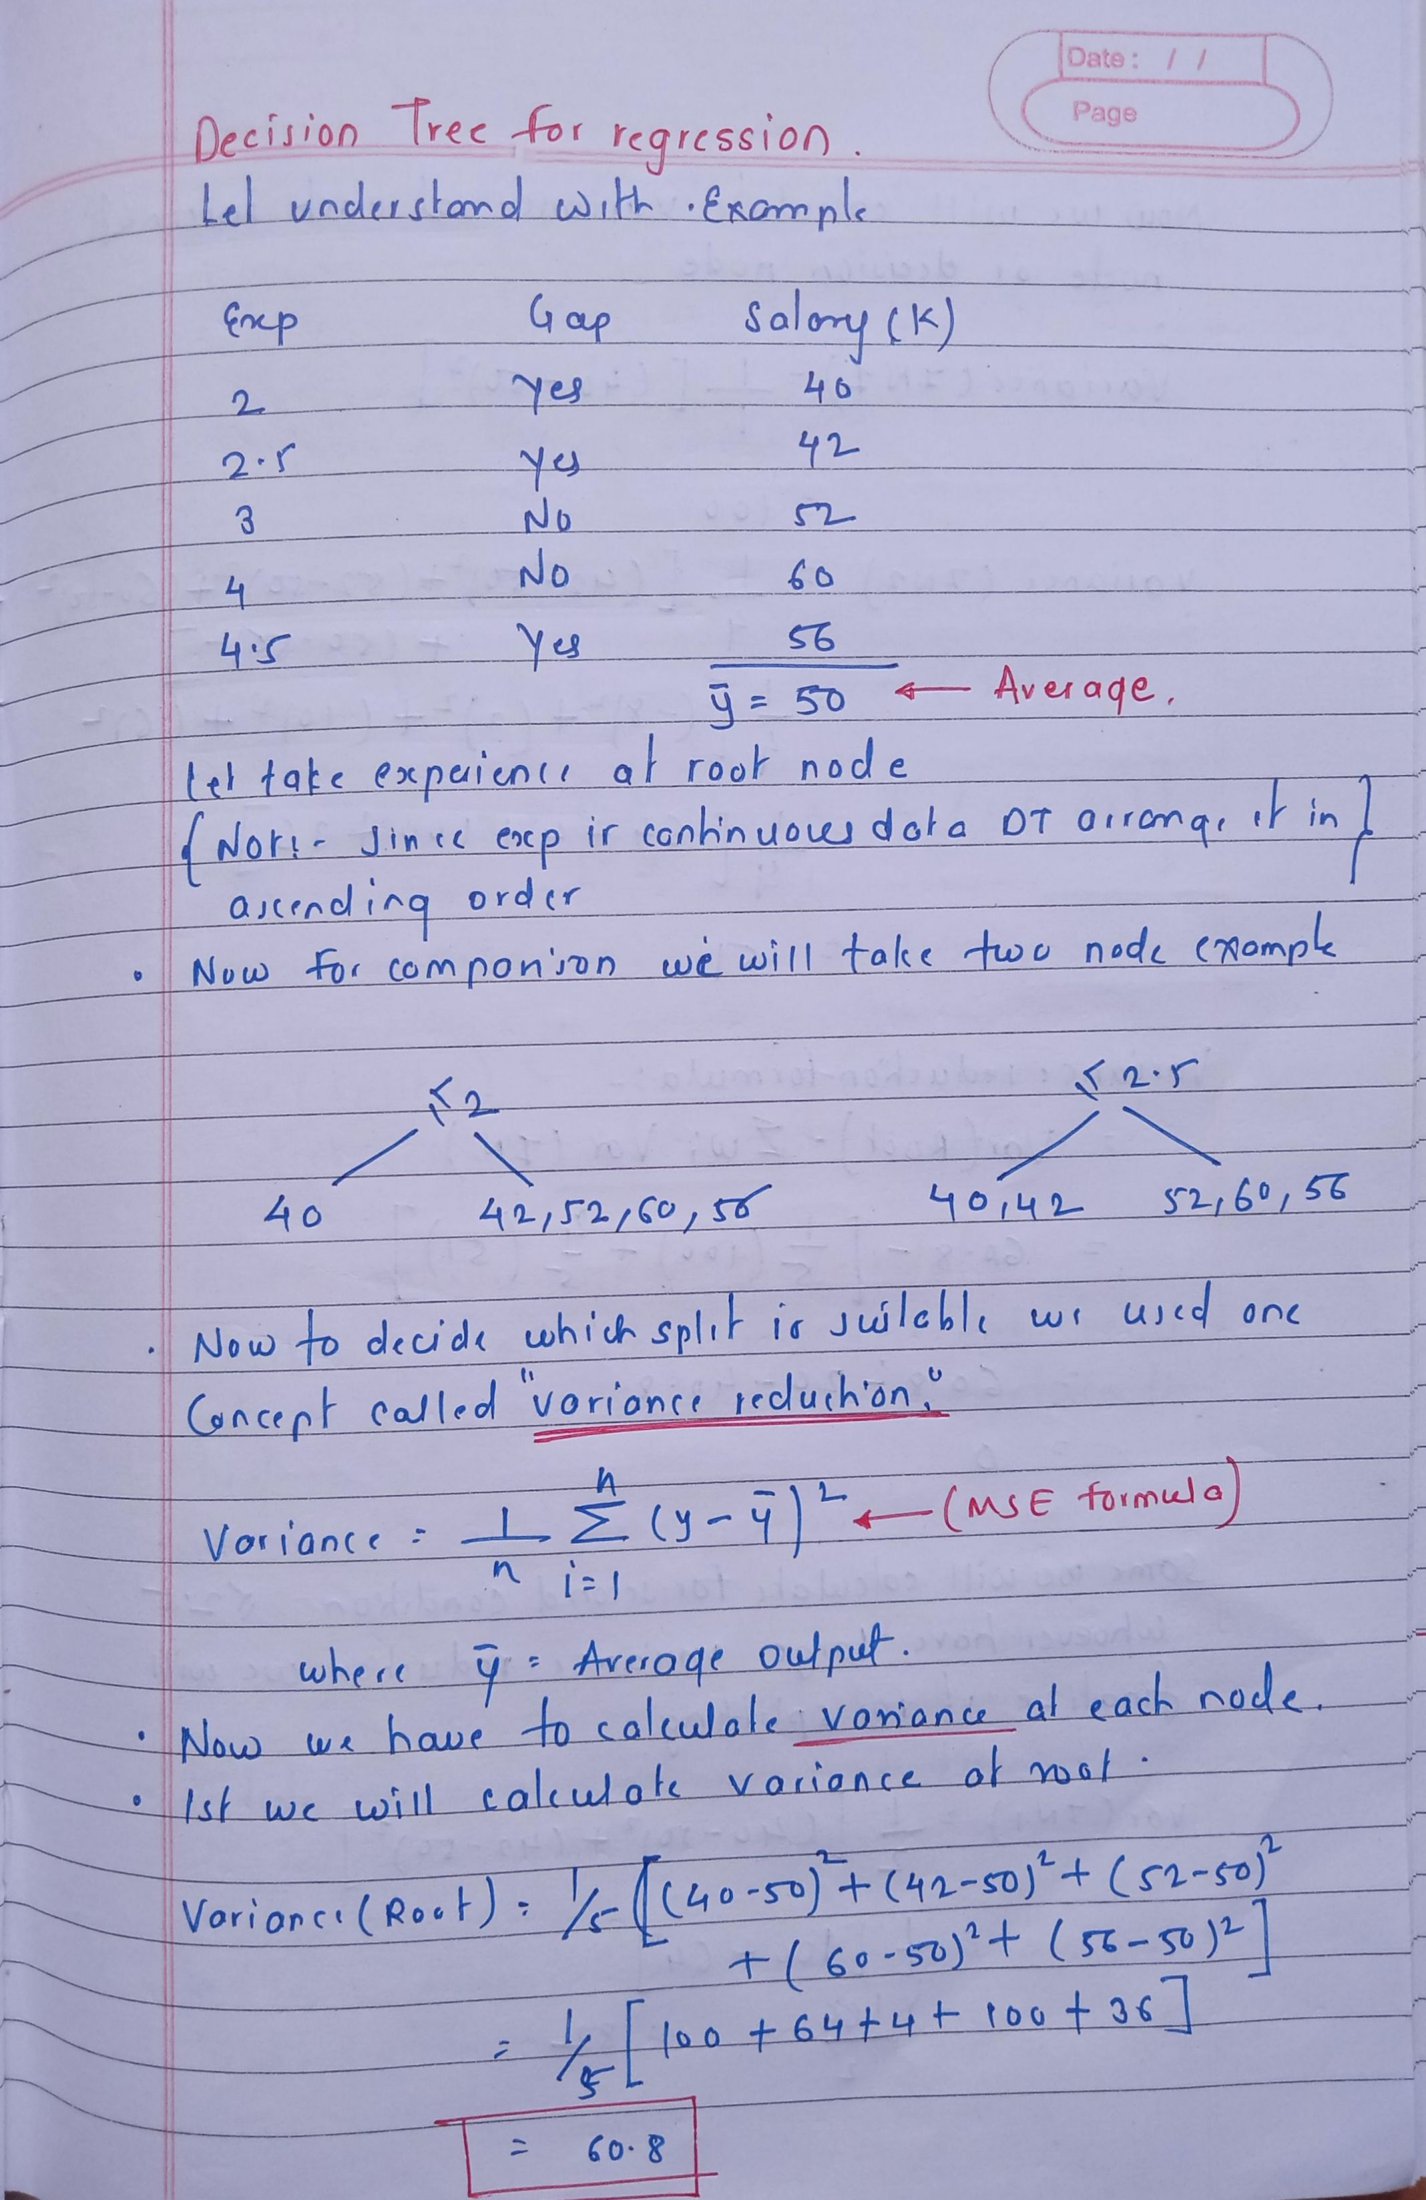 Date: / /
Page
Decision Tree for regression.
Let understand with Example
Exp Gap Salary (K)
2 Yes 40
2.5 Yes 42
3 No 52
4 No 60
4.5 Yes 56
ȳ = 50 ← Average.
Let take experience at root node
{ Note:- Since exp is continuoues data DT arrange it in }
ascending order
• Now for comparison we will take two node example
≤ 2 ≤ 2.5
40 42, 52, 60, 56 40, 42 52, 60, 56
. Now to decide which split is suitable we used one
Concept called "variance reduction."
Variance = 1/n Σ i=1 n (y - ȳ)² ← (MSE formula)
where ȳ = Average output.
• Now we have to calculate variance at each node.
• 1st we will calculate variance at root.
Variance (Root) = 1/5 [(40-50)² + (42-50)² + (52-50)²
+ (60-50)² + (56-50)²]
= 1/5 [100 + 64 + 4 + 100 + 36]
= 60.8